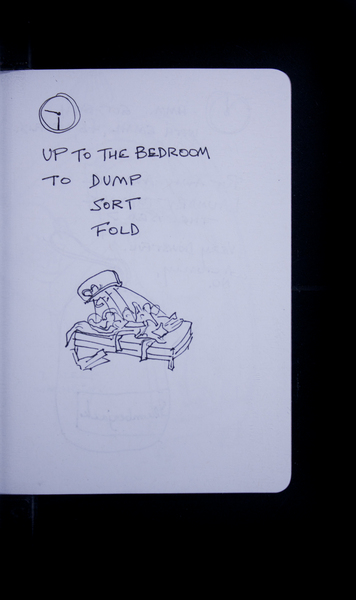 UP TO THE BEDROOM
TO DUMP
SORT
FOLD